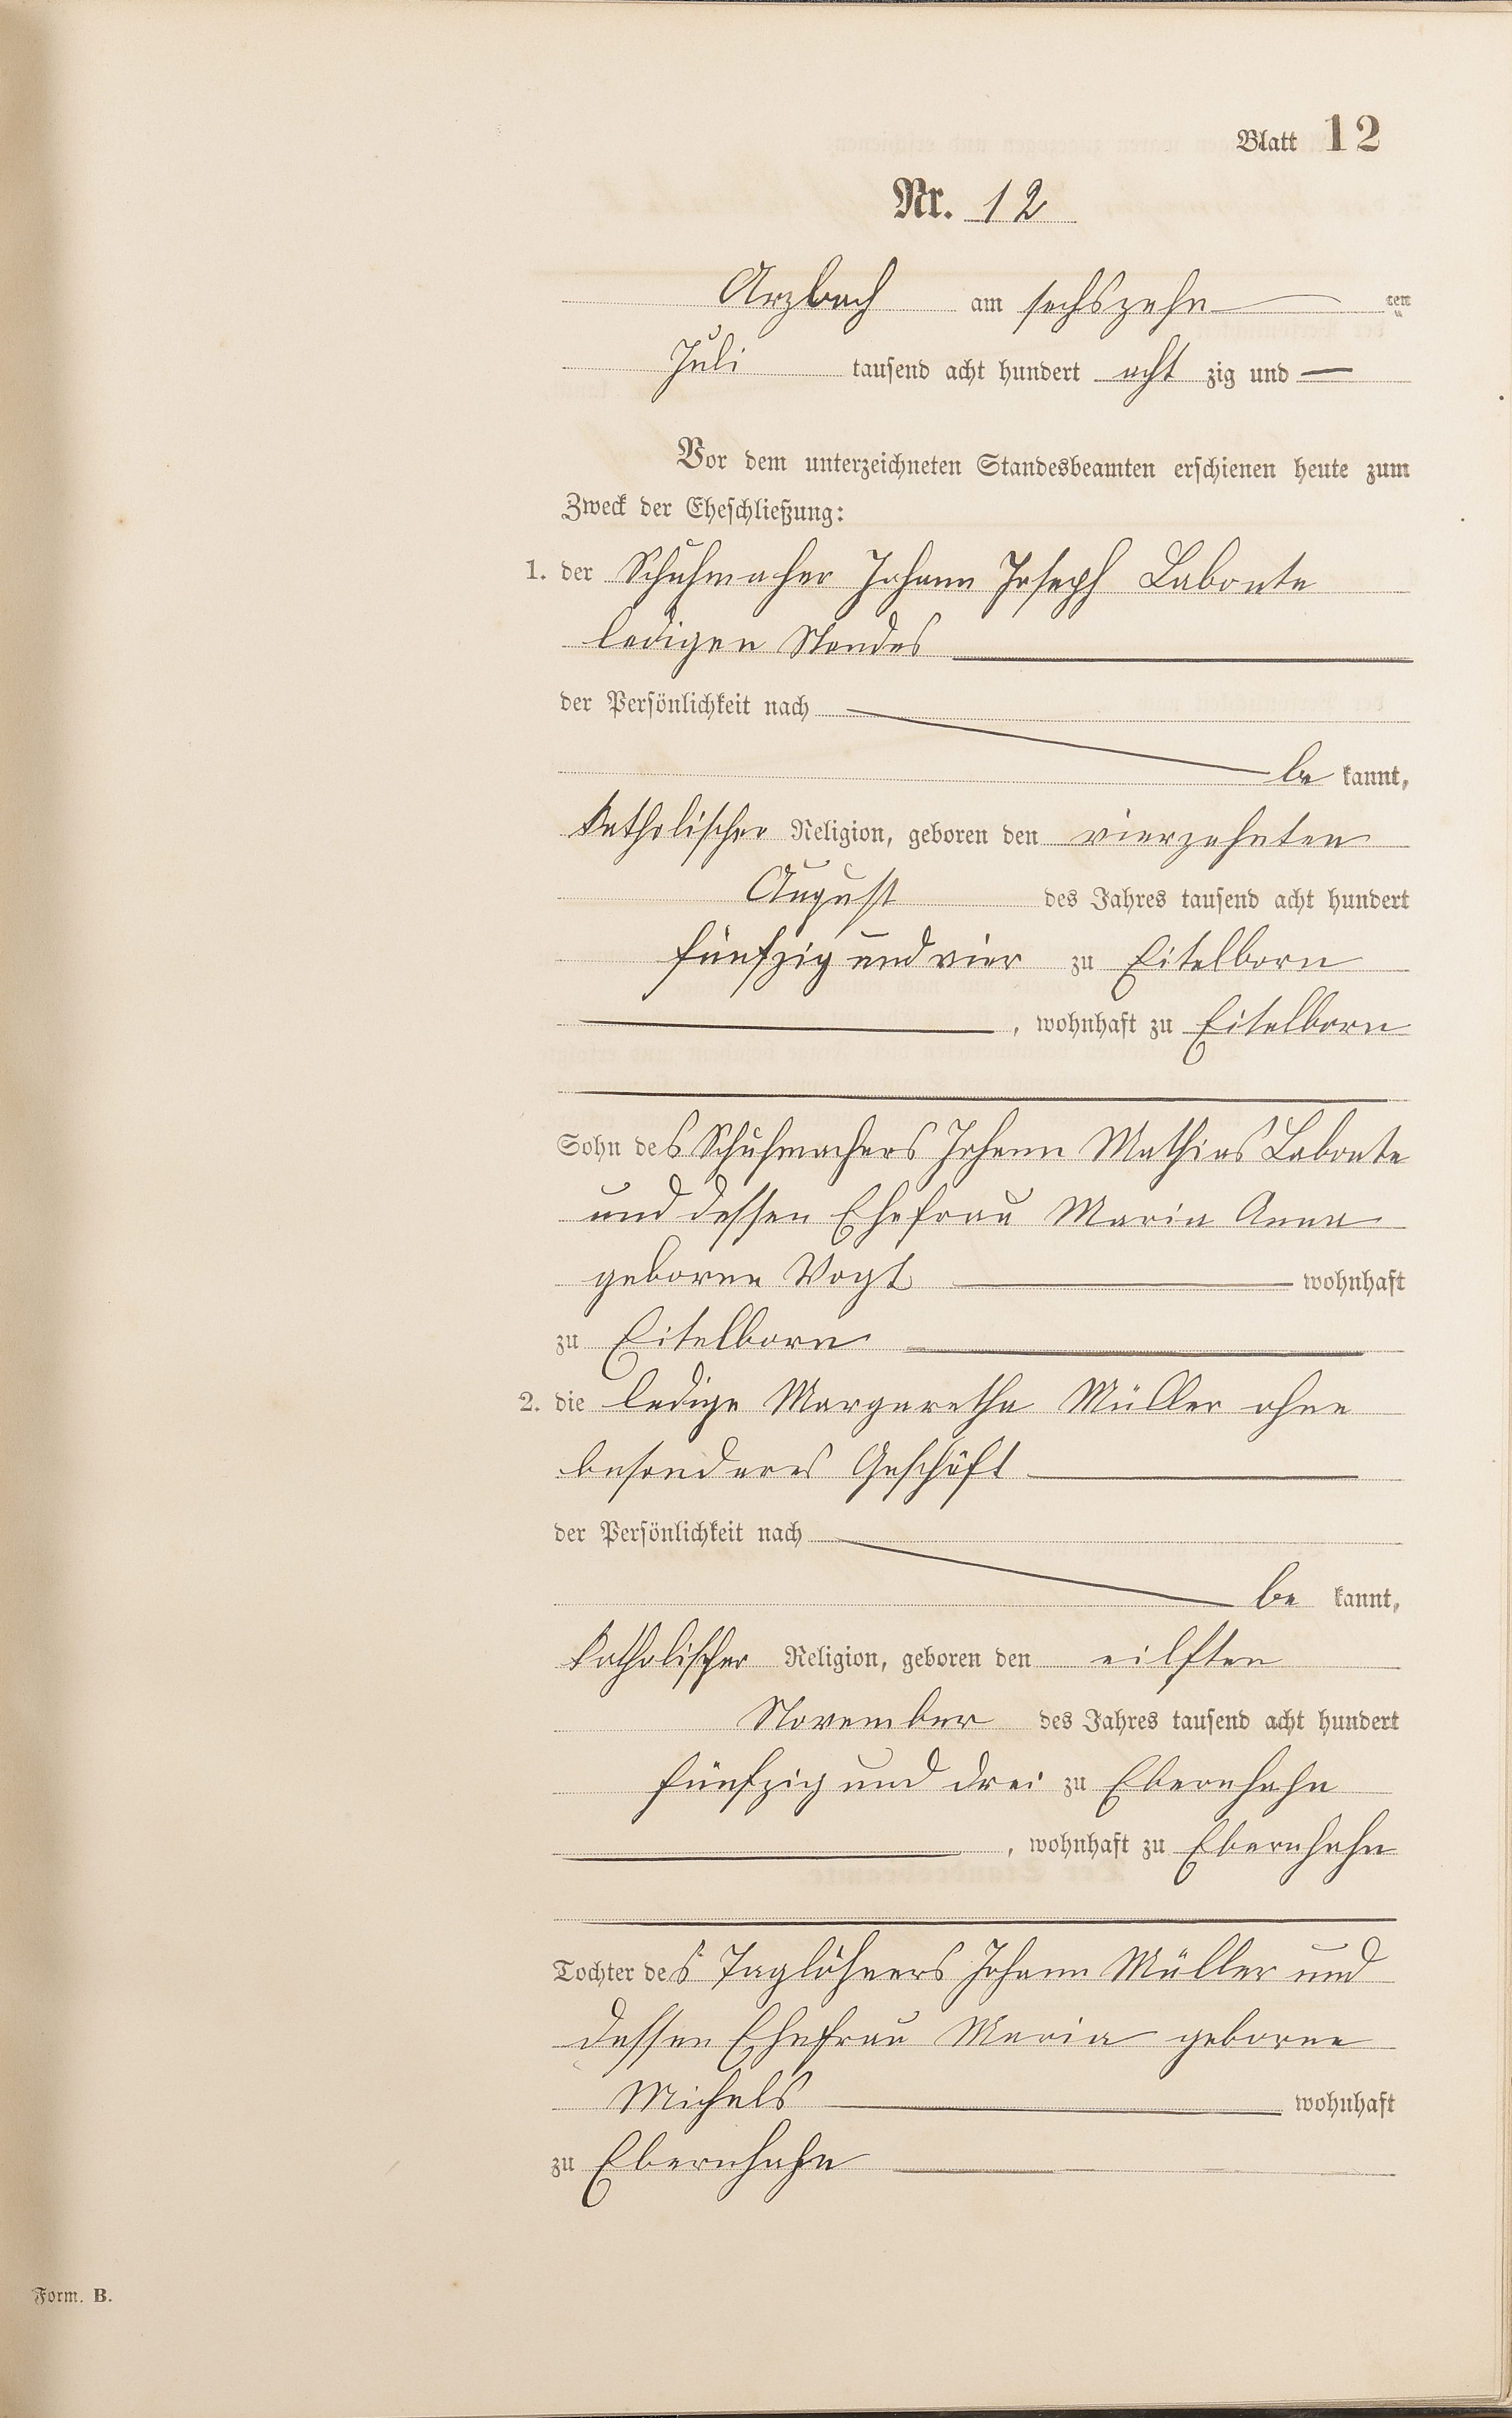 Blatt 12
Nr. 12
Arzbach am sechszehn ten
Juli tausend acht hundert acht zig und —
Vor dem unterzeichneten Standesbeamten erschienen heute zum
Zweck der Eheschließung:
1. der Schuhmacher Johann Joseph Labonte
ledigen Standes
der Persönlichkeit nach
be kannt,
katholischer Religion, geboren den vierzehnten
August des Jahres tausend acht hundert
fünfzig und vier zu Eitelborn
, wohnhaft zu Eitelborn
Sohn des Schuhmachers Johann Mathias Labonte
und dessen Ehefrau Maria Anna
geborne Vogt wohnhaft
zu Eitelborn
2. die ledige Margaretha Müller ohne
besonderes Geschäft
der Persönlichkeit nach
be kannt,
katholischer Religion, geboren den eilften
November des Jahres tausend acht hundert
fünfzig und drei zu Ebernhahn
, wohnhaft zu Ebernhahn
Tochter des Taglöhners Johann Müller und
dessen Ehefrau Maria geborne
Michels wohnhaft
zu Ebernhahn
Form. B.